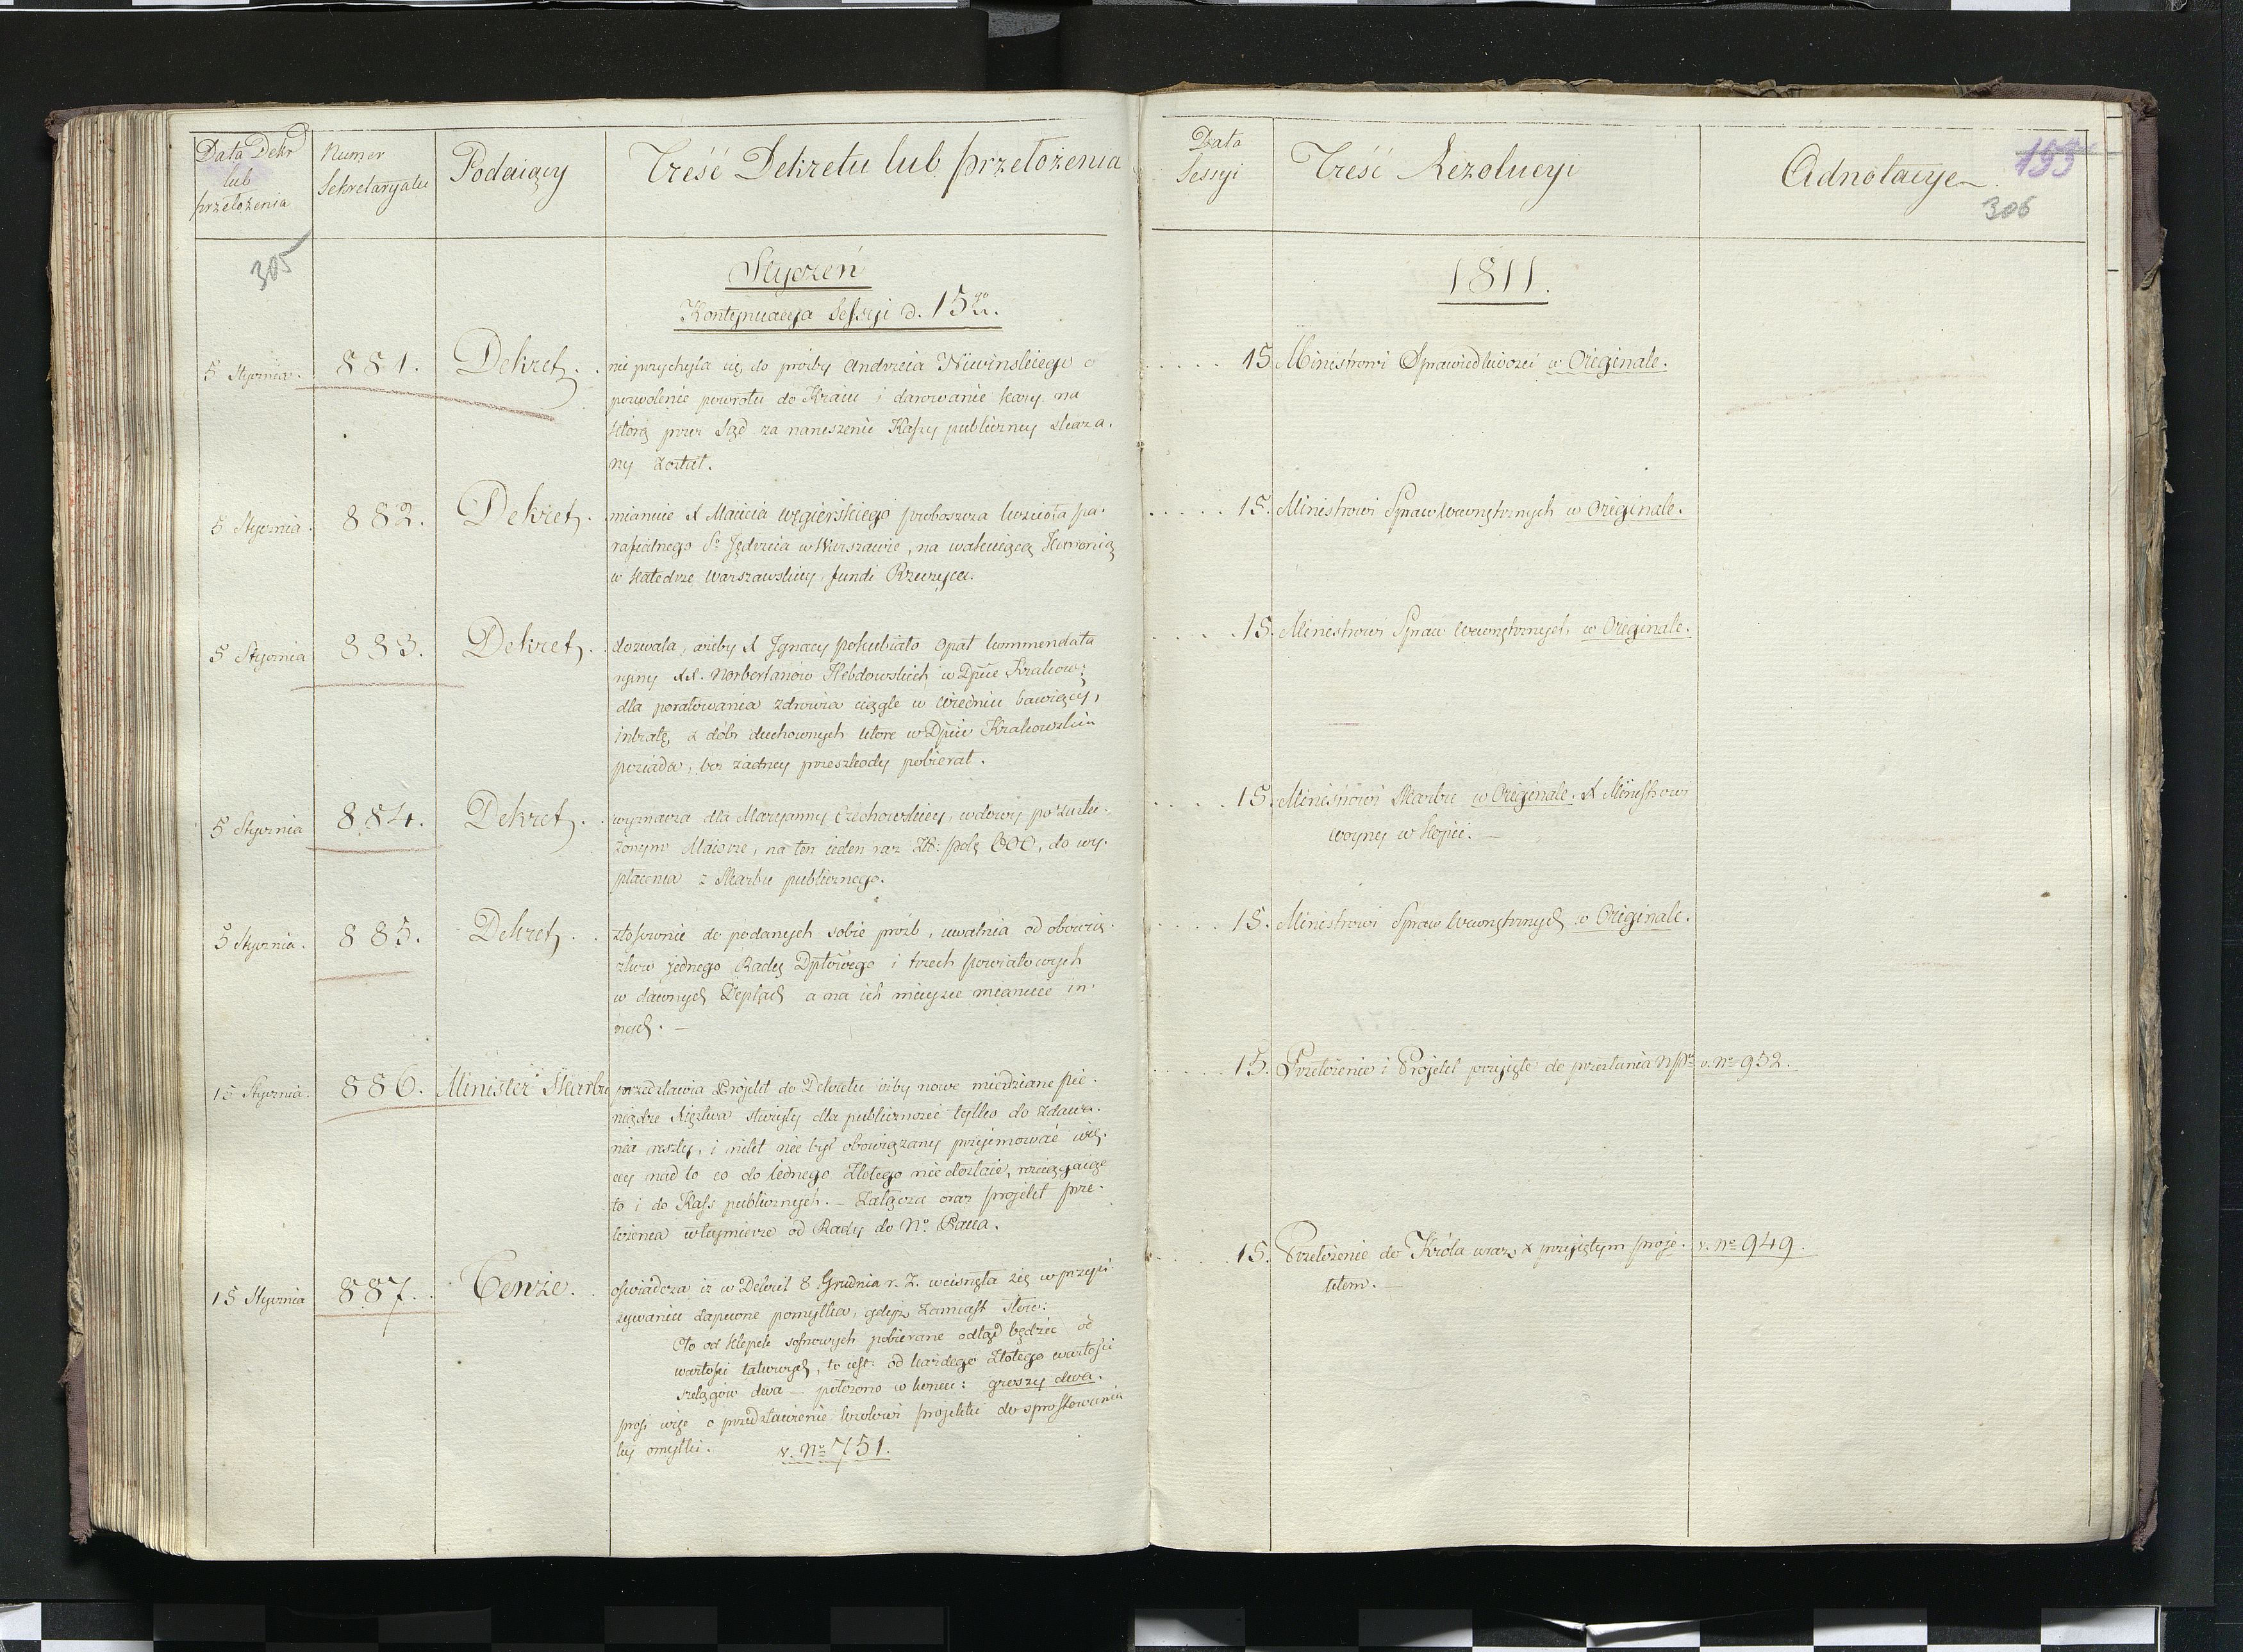 Data Dekr
lub
przełożenia
Numer
Sekretaryatu
Podaiący
Treść Dekretu lub przełożenia
Data
Sessyi
Treść Rezolucyi
Adnotacye
153
306
305
Styczeń
1811.
Kontynuacya Sessyi d. 15go.
5 Stycznia.
881.
Dekret.
nie przychyla się do proźby Andrzeia Niewinskiego o
pozwolenie powrotu do Kraiu i darowanie kary na
którą przez Sąd za naruszenie Kassy publiczney skaza-
ny został.
15 Ministrowi Sprawiedliwości w Originale.
5 Stycznia.
882.
Dekret.
mianuie X Macieia Węgierskiego proboszcza kościoła pa-
rafialnego Sgo Jędrzeia w Warszawie, na wakuiącą Kanonią
w Katedrze Warszawskiey fundi Rzeczyca.
15. Ministrowi Spraw Wewnętrznych w Originale.
5 Stycznia
883.
Dekret.
dozwala, ażeby X Jgnacy Pokubiało Opat kommendata
ryiny XX. Norbertanów Hebdowskich w Dpcie Krakow:
dla poratowania zdrowia ciągle w Wiedniu bawiący,
intratę z dóbr duchownych które w Dpcie Krakowskim
posiada, bez żadney przeszkody pobierał.
15. Ministrowi Spraw Wewnętrznych w Originale.
5 Stycznia
884.
Dekret.
wyznacza dla Maryanny Czechowskiey, wdowy po zasłu-
żonym Maiorze, na ten ieden raz Zł: pols 600, do wy-
płacenia z Skarbu publicznego.
15. Ministrowi Skarbu w Originale. X Ministrowi
Woyny w Kopii. —
5 Stycznia.
885.
Dekret.
stosownie do podanych sobie próśb, uwalnia od obowią-
zków jednego Radcę Dptowego i trzech powiatowych
w dawnych Deptach a na ich mieysce mianuie in-
nych. —
15. Ministrowi Spraw Wewnętrznych w Originale.
15 Stycznia.
886.
Minister Skarbu
przedstawia Projekt do Dekretu iżby nowe miedziane pie-
niądze Xięztwa służyły dla publiczności tylko do zdawa-
nia reszty, i nikt nie był obowiązany przyjmować wię-
cey nad to co do iednego Złotego niedostaie, rozciągaiąc
to i do Kass publicznych. — Załącza oraz projekt prze-
łożenia w teymierze od Rady do No. Pana.
15. Przełożenie i Projekt przyjęte do przesłania NPu
v. No 952.
15 Stycznia
887.
Tenże.
oświadcza iż w Dekret 8 Grudnia r. z. wcisnęła się w przepi-
sywaniu zapewne pomyłka, gdyż zamiast słów:
Cło od klepek sosnowych pobierane odtąd będzie od
wartości takowych, to iest: od każdego Złotego wartości
szelągów dwa — położono w koncu: groszy dwa.
prosi więc o przedstawienie Królowi projektu do sprostowania
tey omyłki. v. No 751.
15. Przełożenie do Króla wraz z przyjętym proje-
ktem. —
v. No 949.